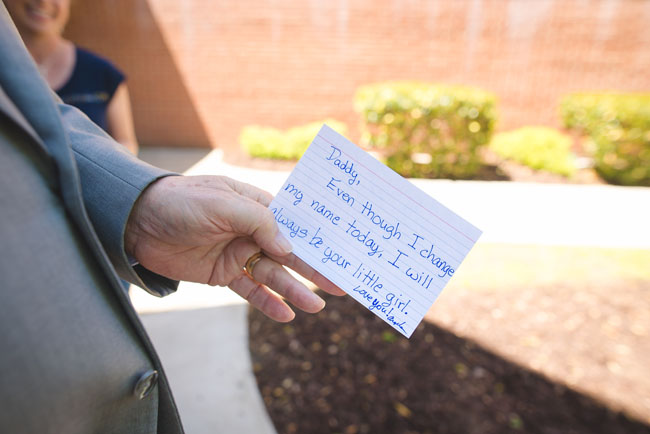 Daddy,
Even though I change
my name today, I will
always be your little girl.
Love you!